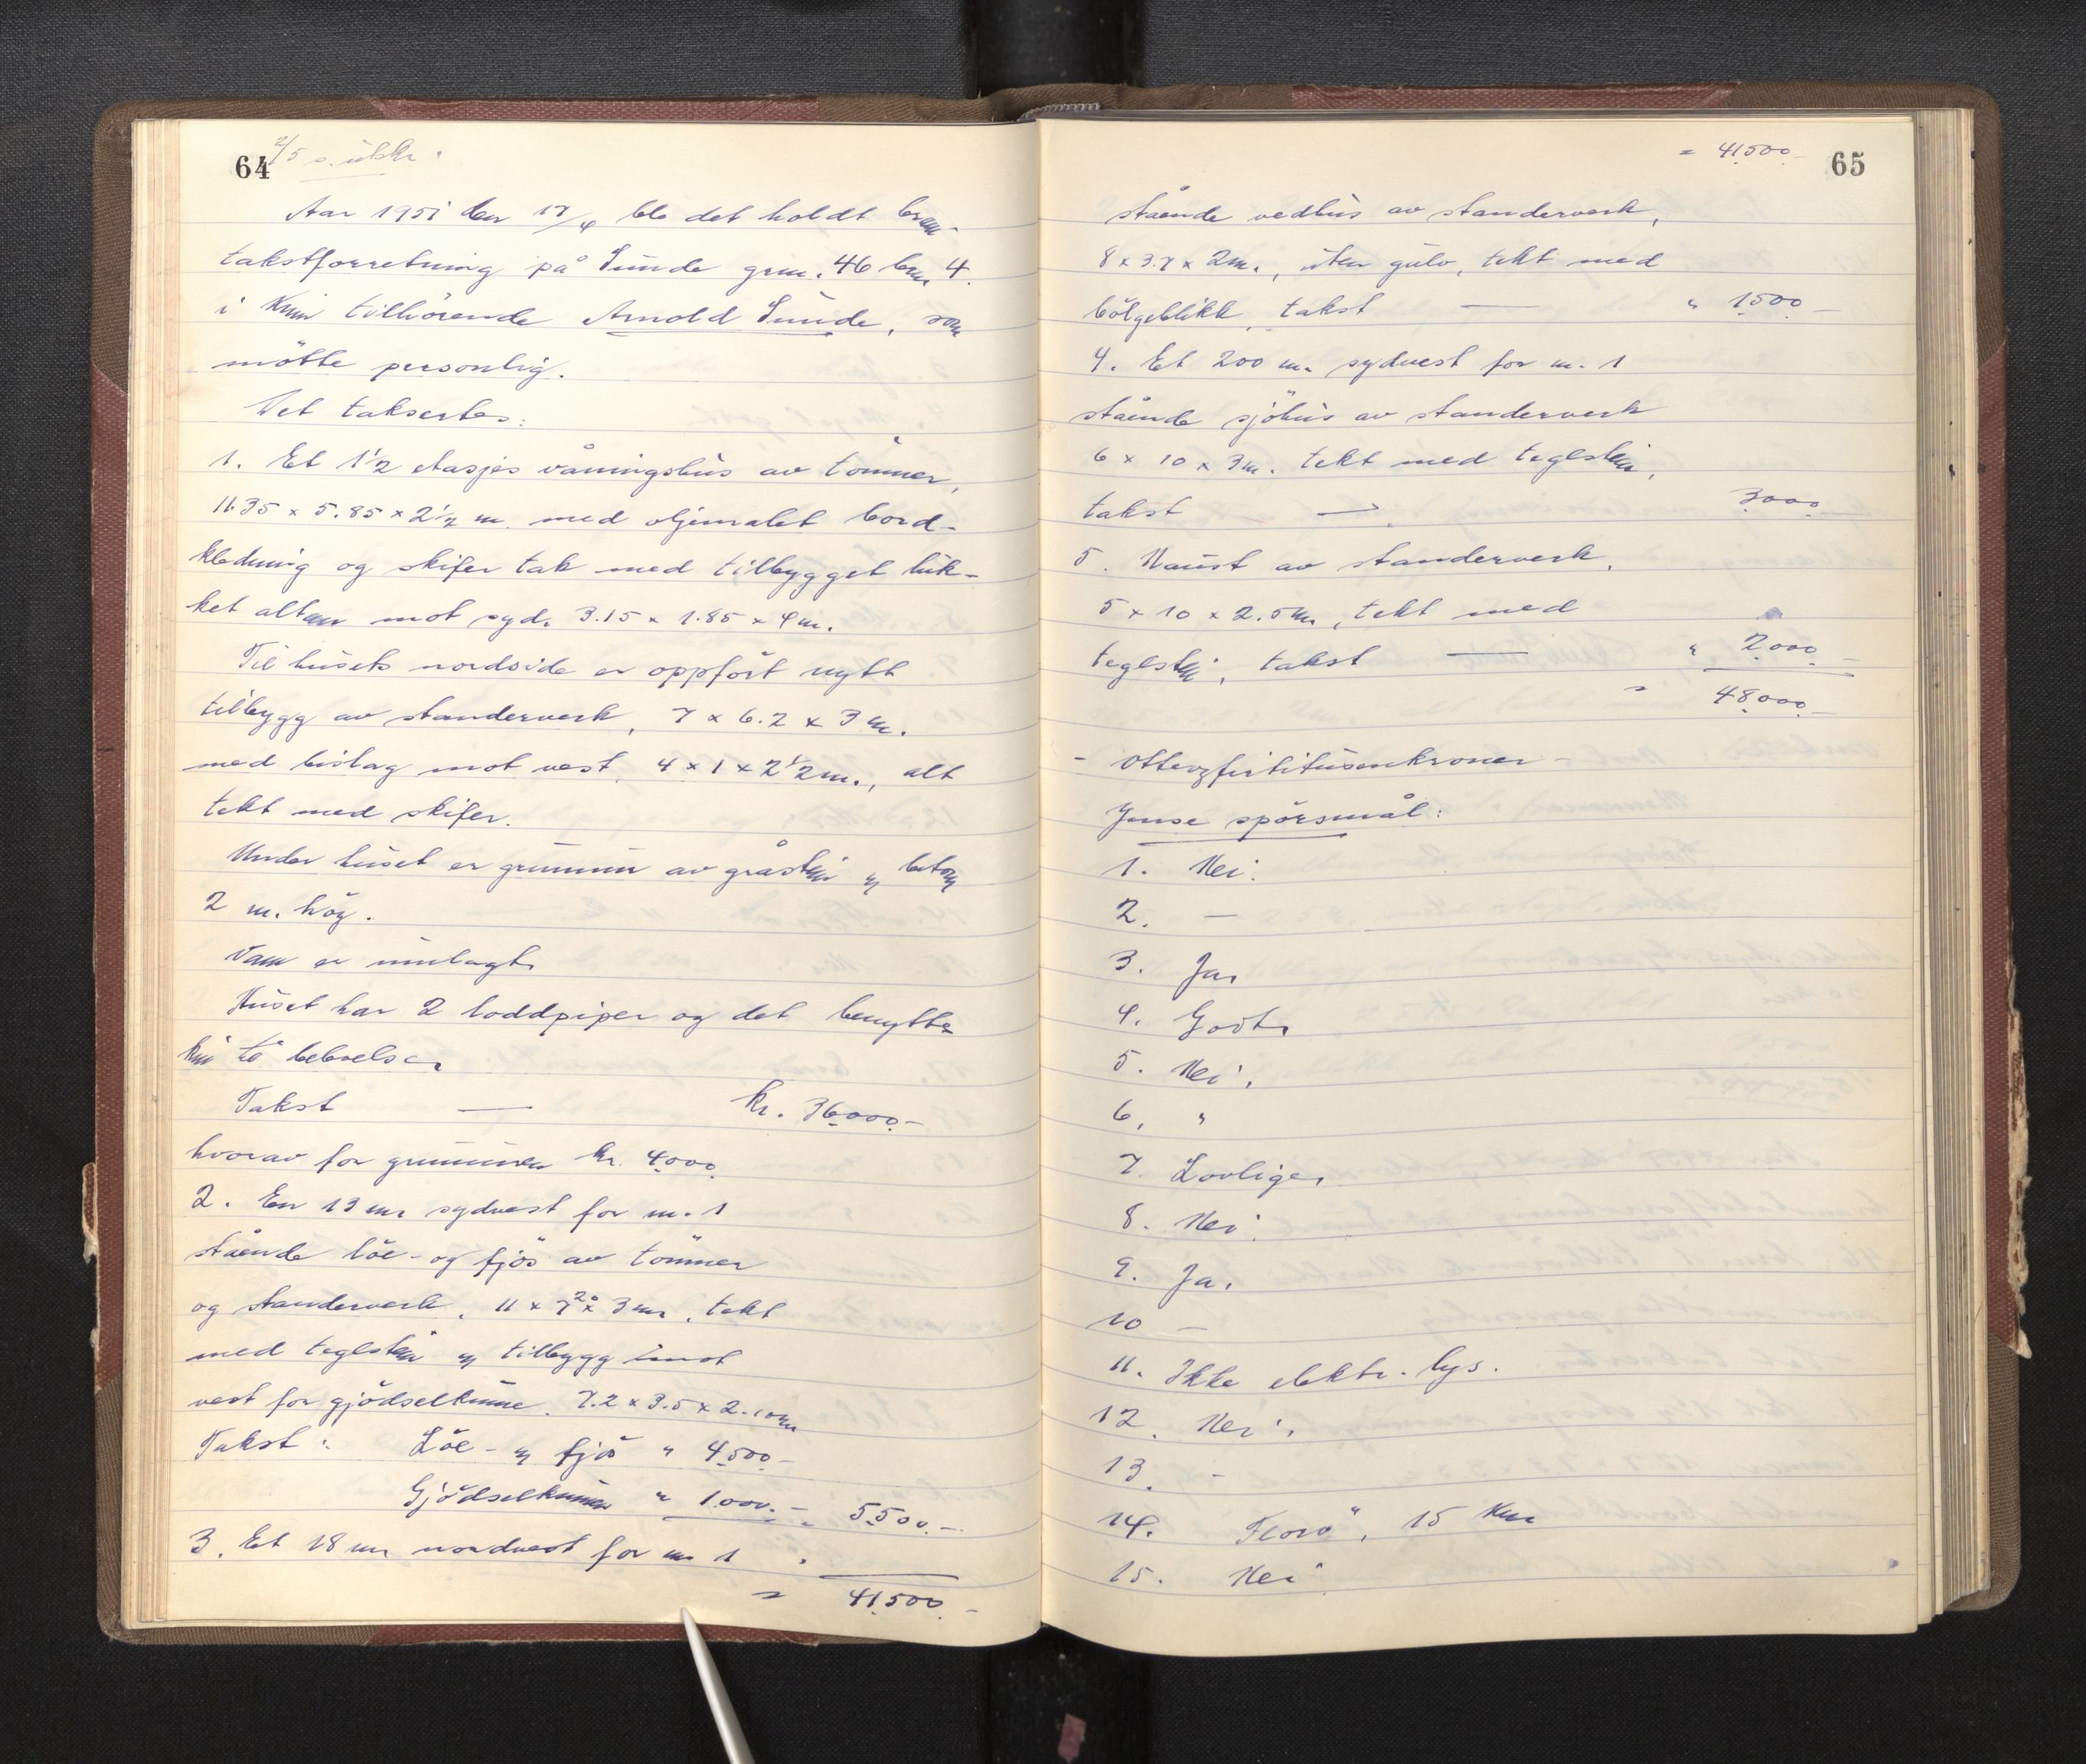 64
2/5 s. utskr.
Aar 1951 den 17/4 ble det holdt bran-
takstforretning på Sunde gnr. 46 bnr. 4.
i Kinn tilhörende Arnold Sunde, som
mötte personlig.
Det taksertes:
1. Et 1½ etasjes våningshus av tömmer,
11.35 x 5.85 x 2½ m. med oljemalet bord-
kledning og skifer tak med tilbygget luk-
ket altan mot syd. 3.15 x 1.85 x 4 m.
Til husets nordside er oppfört nytt
tilbygg av standerverk, 7 x 6.2 x 3 m.
med bislag mot vest, 4 x 1 x 2½ m., alt
tekt med skifer.
Under huset er grunmur av gråstein og betong
2 m. höy.
Vann er innlagt.
Huset har 2 loddpiper og det benyttes
kun til beboelse.
Takst — kr. 36.000.-
hvorav for grunmuren kr. 4.000
2. En 13 m. sydvest for nr. 1
stående löe- og fjös av tömmer
og standerverk, 11 x 7.20 x 3 m., tekt
med teglstein og tilbygg imot
vest for gjödselkum. 7.2 x 3.5 x 2.10 m
Takst: Löe- og fjös " 4.500.-
Gjödselkummen " 1.000.- = 5.500.-
3. Et 18 m. nordvest for nr. 1
= 41.500.-
65
= 41.500-
stående vedhus av standerverk,
8 x 3.7 x 2 m., uten gulv, tekt med
bölgeblikk, takst — " 1.500-
4. Et 200 m. sydvest for nr. 1
stående sjöhus av standerverk
6 x 10 x 3 m. tekt med teglstein,
takst — 3.000-
5. Naust av standerverk,
5 x 10 x 2.5 m, tekt med
teglstein, takst — " 2.000.-
= 48.000.-
- Otteogfirtitusenkroner -
Innse spörsmål:
1. Nei.
2. —
3. Ja.
4. Godt.
5. Nei.
6. "
7. Lovlige.
8. Nei.
9. Ja.
10 —
11. Ikke elektr. lys.
12. Nei.
13. -
14. Florö, 15 km
15. Nei